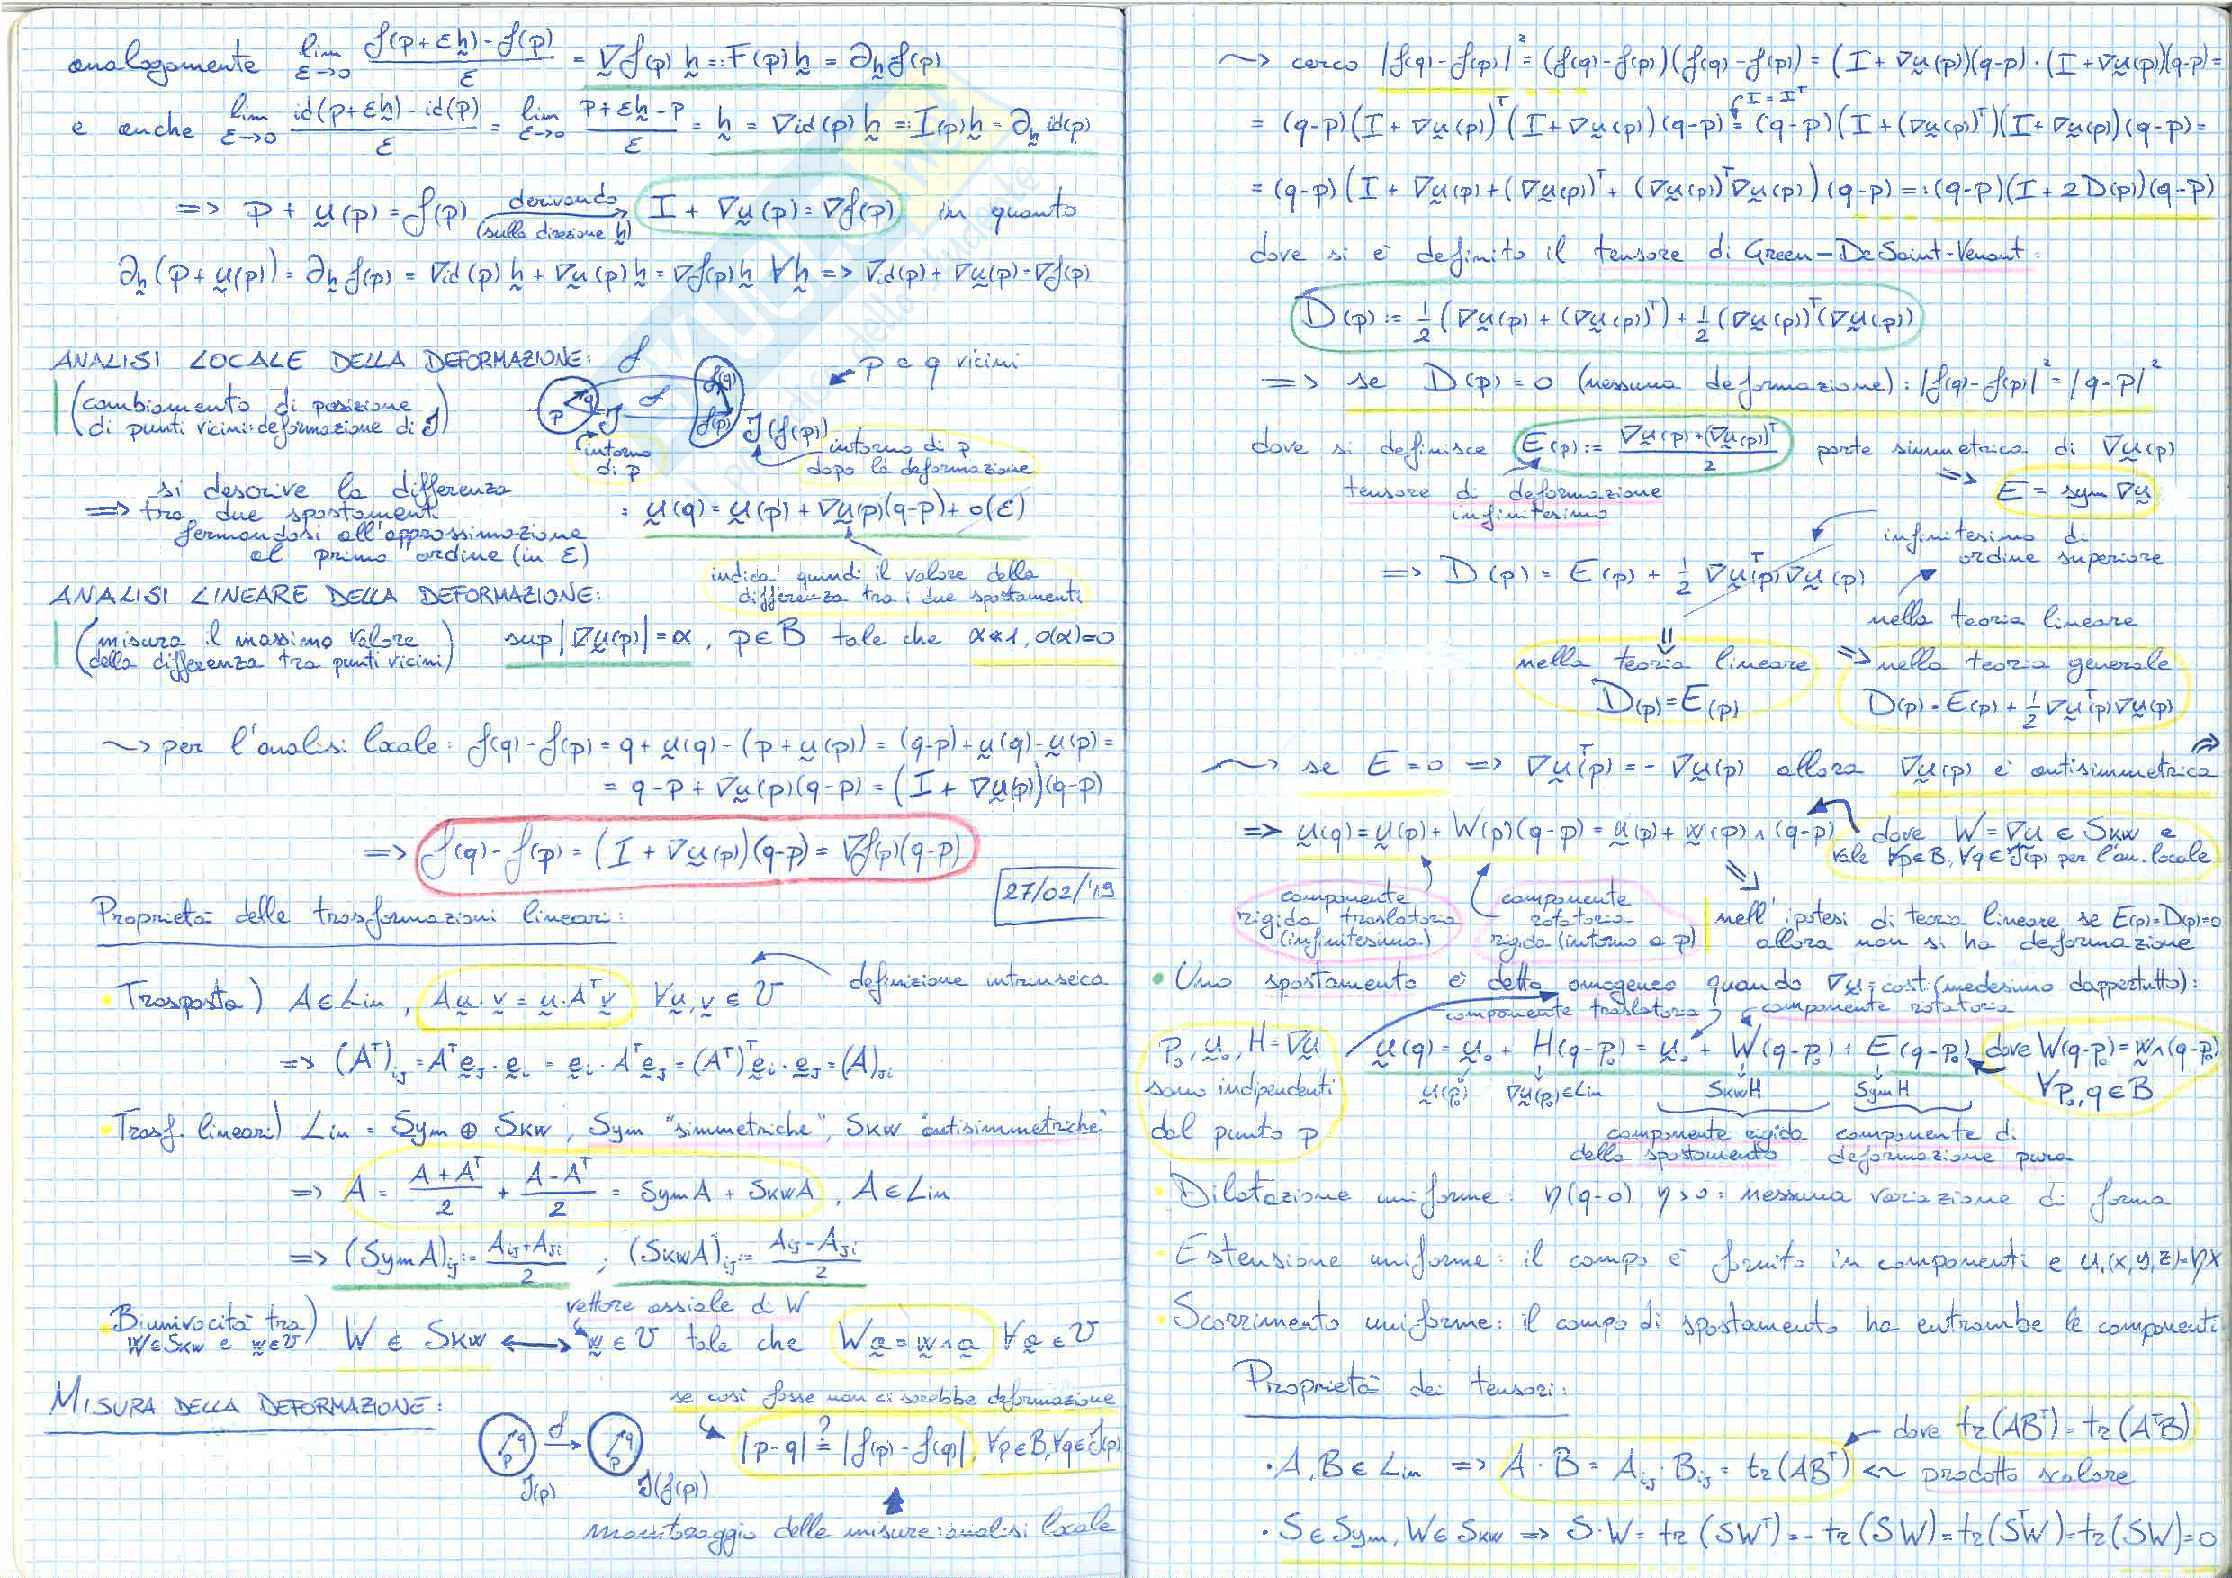 analogamente lim ε→0 (f(p+εh)-f(p))/ε = ∇f(p) h =: F(p) h = ∂h f(p)
e anche lim ε→0 (id(p+εh)-id(p))/ε = lim ε→0 (p+εh-p)/ε = h = ∇id(p) h =: I(p) h = ∂h id(p)
=> p + u(p) = f(p) derivando (sulla direzione h) → I + ∇u(p) = ∇f(p) in quanto
∂h(p+u(p)) = ∂h f(p) = ∇id(p) h + ∇u(p) h = ∇f(p) h ∀h => ∇id(p) + ∇u(p) = ∇f(p)
ANALISI LOCALE DELLA DEFORMAZIONE:
(cambiamento di posizione
di punti vicini: deformazione di J)
f
p q J f f(q) f(p) J(f(p))
p e q vicini
intorno
di p
intorno di p
dopo la deformazione
=> si descrive la differenza
tra due spostamenti
fermandosi all'approssimazione
al primo ordine (in ε)
: u(q) = u(p) + ∇u(p)(q-p) + o(ε)
indica quindi il valore della
differenza tra i due spostamenti
ANALISI LINEARE DELLA DEFORMAZIONE:
(misura il massimo valore
della differenza tra punti vicini)
sup|∇u(p)| = α, p∈B tale che α≪1, o(α)=0
~> per l'analisi locale: f(q)-f(p) = q+u(q)-(p+u(p)) = (q-p)+u(q)-u(p) =
= q-p+∇u(p)(q-p) = (I+∇u(p))(q-p)
=> f(q)-f(p) = (I+∇u(p))(q-p) = ∇f(p)(q-p)
27/02/'19
Proprietà delle trasformazioni lineari:
• Trasposta) A∈Lin, Au·v = u·Aᵀv ∀u,v∈V
definizione intrinseca
=> (Aᵀ)ij = Aᵀej·ei = ei·Aᵀej = (Aᵀ)ᵀei·ej = (A)ji
• Trasf. lineari) Lin = Sym ⊕ Skw, Sym "simmetriche", Skw "antisimmetriche"
=> A = (A+Aᵀ)/2 + (A-Aᵀ)/2 = SymA + SkwA, A∈Lin
=> (SymA)ij = (Aij+Aji)/2 ; (SkwA)ij = (Aij-Aji)/2
• Biunivocità tra
W∈Skw e w∈V)
vettore assiale di W
W∈Skw ↔ w∈V tale che Wa = w∧a ∀a∈V
MISURA DELLA DEFORMAZIONE:
se così fosse non ci sarebbe deformazione
p q f p q J(p) J(f(p))
|p-q| ?= |f(p)-f(q)|, ∀p∈B, ∀q∈J(p)
monitoraggio delle misure: analisi locale
~> cerco |f(q)-f(p)|² = (f(q)-f(p))(f(q)-f(p)) = (I+∇u(p))(q-p)·(I+∇u(p))(q-p) =
I=Iᵀ
= (q-p)(I+∇u(p))ᵀ(I+∇u(p))(q-p) = (q-p)(I+(∇u(p))ᵀ)(I+∇u(p))(q-p) =
= (q-p)(I+∇u(p)+(∇u(p))ᵀ+(∇u(p))ᵀ∇u(p))(q-p) =: (q-p)(I+2D(p))(q-p)
dove si è definito il tensore di Green-De Saint-Venant:
D(p) := 1/2(∇u(p)+(∇u(p))ᵀ) + 1/2(∇u(p))ᵀ(∇u(p))
=> se D(p) = 0 (nessuna deformazione): |f(q)-f(p)|² = |q-p|²
dove si definisce E(p) := (∇u(p)+(∇u(p))ᵀ)/2 parte simmetrica di ∇u(p)
tensore di deformazione
infinitesimo
=> E = sym ∇u
infinitesimo di
ordine superiore
=> D(p) = E(p) + 1/2 ∇uᵀ(p)∇u(p)
nella teoria lineare
nella teoria lineare
D(p) = E(p)
=> nella teoria generale
D(p) = E(p) + 1/2 ∇uᵀ(p)∇u(p)
~> se E=0 => ∇uᵀ(p) = -∇u(p) allora ∇u(p) è antisimmetrica =>
=> u(q) = u(p)+W(p)(q-p) = u(p)+w(p)∧(q-p)
dove W=∇u∈Skw e
vale ∀p∈B, ∀q∈J(p) per l'an. locale
componente
rigida traslatoria
(infinitesima)
componente
rotatoria
rigida (intorno a p)
nell'ipotesi di teoria lineare se E(p)=D(p)=0
allora non si ha deformazione
• Uno spostamento è detto omogeneo quando ∇u=cost (medesimo dappertutto):
componente traslatoria componente rotatoria
p₀, u₀, H=∇u
sono indipendenti
dal punto p
u(q) = u₀ + H(q-p₀) = u₀ + W(q-p₀) + E(q-p₀) dove W(q-p₀)=w∧(q-p₀)
u(p₀) ∇u(p₀)∈Lin SkwH SymH ∀p₀,q∈B
componente rigida
dello spostamento
componente di
deformazione pura
• Dilatazione uniforme: η(q-o) η>0: nessuna variazione di forma
• Estensione uniforme: il campo è fornito in componenti e u₁(x,y,z)=ηx
• Scorrimento uniforme: il campo di spostamento ha entrambe le componenti
Proprietà dei tensori:
dove tr(ABᵀ) = tr(AᵀB)
• A,B∈Lin => A·B = Aij·Bij = tr(ABᵀ) <~ prodotto scalare
• S∈Sym, W∈Skw => S·W = tr(SWᵀ) = -tr(SW) = tr(SᵀW) = tr(SW) = 0